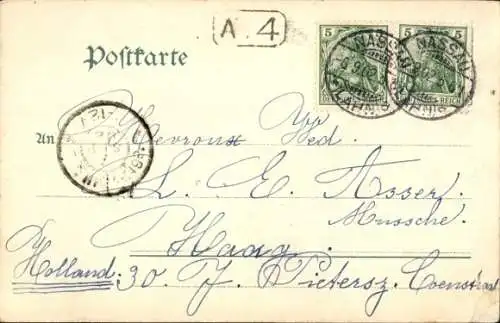 A. 4
Postkarte
5 5
NASSAU NASSAU
REICH
(LAHN) (LAHN)
An Mevrouw Wed.
L. E. Asser
Haag.
Holland: 30. J. Pietersz. Coenstraat